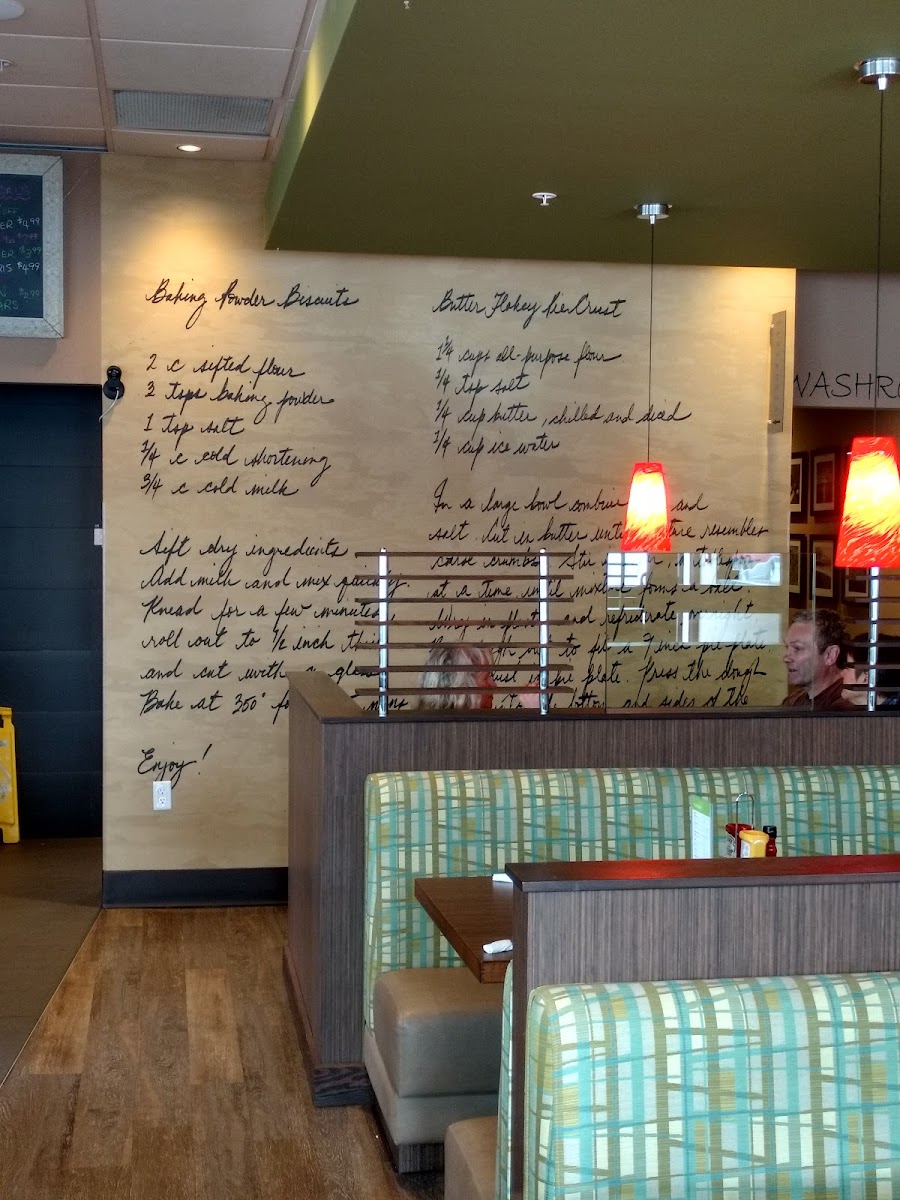 Baking Powder Biscuits
2 c sifted flour
3 tsps baking powder
1 tsp salt
1/4 c cold shortening
3/4 c cold milk
Sift dry ingredients
Add milk and mix quickly.
Knead for a few minutes,
roll out to 1/2 inch
and cut with a
Bake at 350°
Enjoy!
Butter Flakey Pie Crust
1 1/4 cups all-purpose flour
1/4 tsp salt
1/4 cup butter, chilled and diced
1/4 cup ice water
In a large bowl combine and
salt. Cut in butter resembles
Stir
at a time until
and refrigerate
out to fit a 9 inch pie plate.
plate. Press the dough
and sides of the
WASHR
$4.99
$4.99